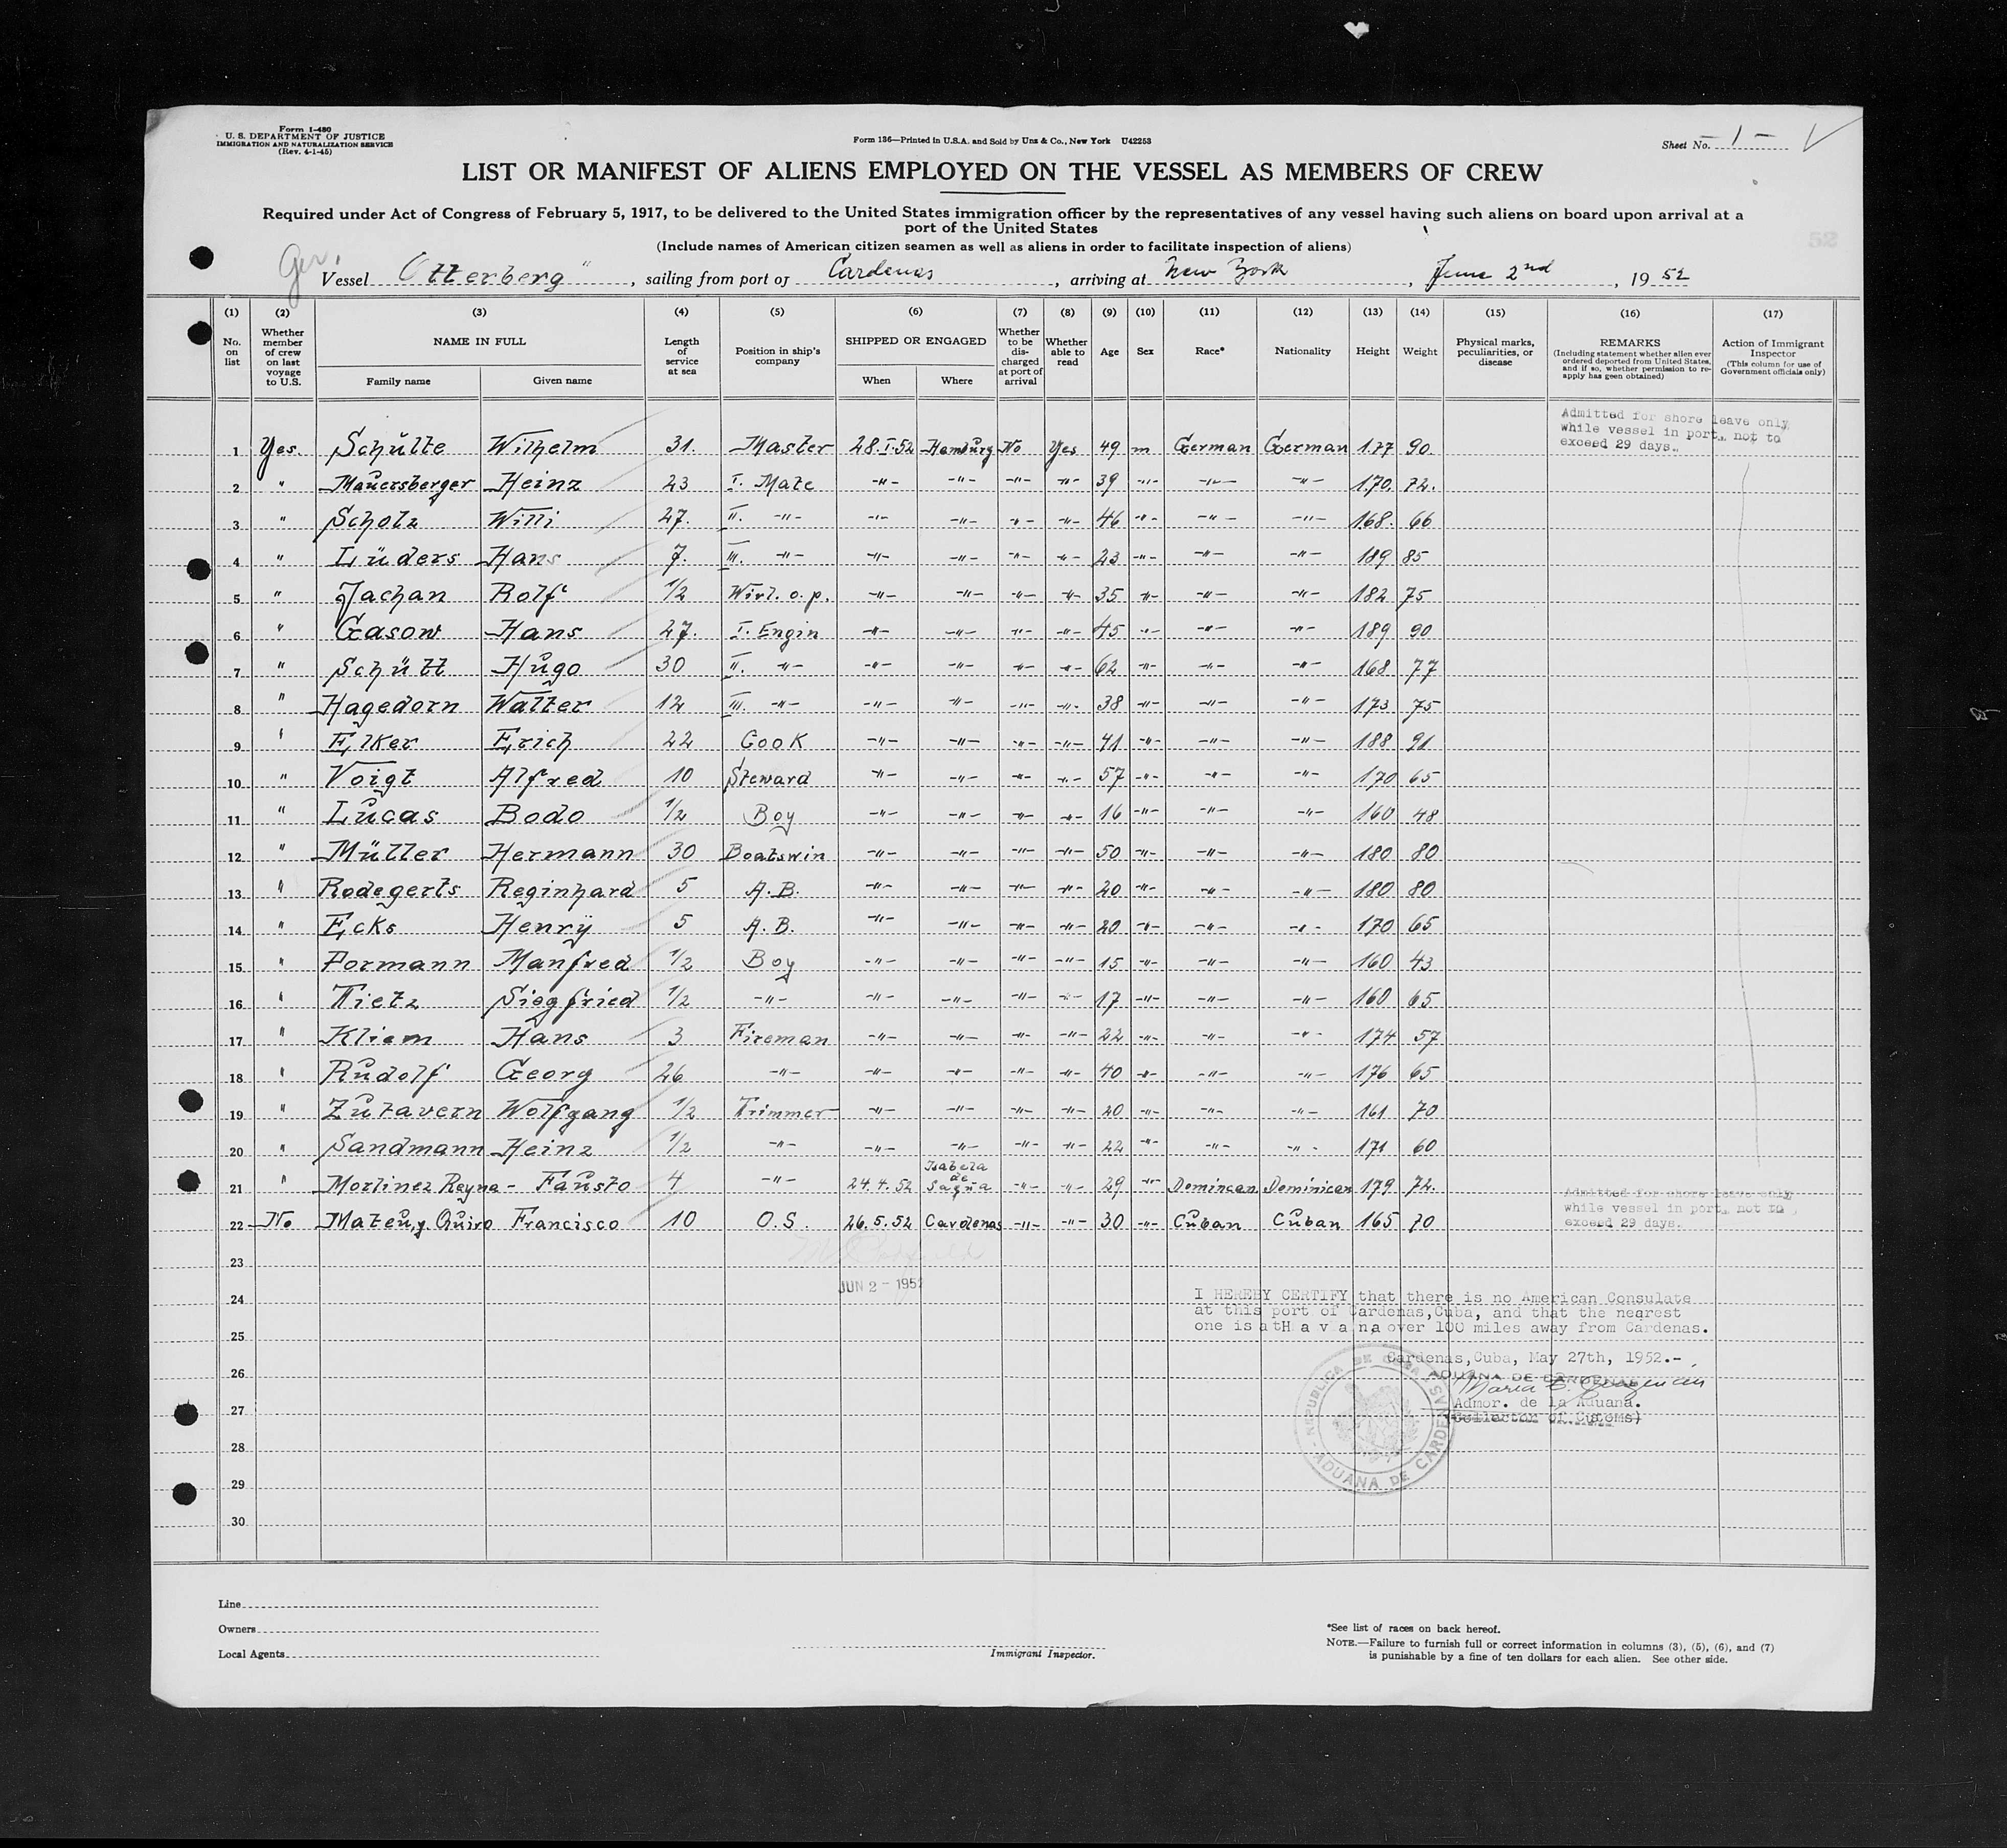 Form I-480
U. S. DEPARTMENT OF JUSTICE
IMMIGRATION AND NATURALIZATION SERVICE
(Rev. 4-1-45)
Form 136—Printed in U.S.A. and Sold by Unz & Co., New York U42253
Sheet No. - 1 -
LIST OR MANIFEST OF ALIENS EMPLOYED ON THE VESSEL AS MEMBERS OF CREW
Required under Act of Congress of February 5, 1917, to be delivered to the United States immigration officer by the representatives of any vessel having such aliens on board upon arrival at a
port of the United States
(Include names of American citizen seamen as well as aliens in order to facilitate inspection of aliens)
52
Ger.
Vessel Otterberg", sailing from port of Cardenas, arriving at New York, June 2nd, 1952
(1) (2) (3) (4) (5) (6) (7) (8) (9) (10) (11) (12) (13) (14) (15) (16) (17)
No. on list
Whether member of crew on last voyage to U.S.
NAME IN FULL
Family name Given name
Length of service at sea
Position in ship's company
SHIPPED OR ENGAGED
When Where
Whether to be discharged at port of arrival
Whether able to read
Age
Sex
Race*
Nationality
Height
Weight
Physical marks, peculiarities, or disease
REMARKS
(Including statement whether alien ever ordered deported from United States, and if so, whether permission to re-apply has geen obtained)
Action of Immigrant Inspector
(This column for use of Government officials only)
Admitted for shore leave only
while vessel in port, not to
exceed 29 days.
1 Yes. Schulte Wilhelm 31. Master 28.I.52 Hamburg No Yes 49 m German German 1.77 90.
2 " Mauersberger Heinz 23 I. Mate -"- -"- -"- -"- 39 -"- -"- -"- 170. 72.
3 " Scholz Willi 27. II. -"- -"- -"- -"- -"- 46 -"- -"- -"- 168. 66
4 " Lüders Hans 7. III. -"- -"- -"- -"- -"- 23 -"- -"- -"- 189 85
5 " Jachan Rolf 1/2 Wirl. o.p. -"- -"- -"- -"- 35 -"- -"- -"- 182 75
6 " Gasow Hans 27. I. Engin -"- -"- -"- -"- 45 -"- -"- -"- 189 90
7 " Schütt Hugo 30 II. -"- -"- -"- -"- -"- 62 -"- -"- -"- 168 77
8 " Hagedorn Walter 12 III. -"- -"- -"- -"- -"- 38 -"- -"- -"- 173 75
9 " Elker Erich 22 Cook -"- -"- -"- -"- 41 -"- -"- -"- 188 91
10 " Voigt Alfred 10 Steward -"- -"- -"- -"- 57 -"- -"- -"- 170 65
11 " Lucas Bodo 1/2 Boy -"- -"- -"- -"- 16 -"- -"- -"- 160 48
12 " Müller Hermann 30 Boatswin -"- -"- -"- -"- 50 -"- -"- -"- 180 80
13 " Rodegerts Reginhard 5 A.B. -"- -"- -"- -"- 20 -"- -"- -"- 180 80
14 " Ecks Henry 5 A.B. -"- -"- -"- -"- 20 -"- -"- -"- 170 65
15 " Pormann Manfred 1/2 Boy -"- -"- -"- -"- 15 -"- -"- -"- 160 43
16 " Tietz Siegfried 1/2 -"- -"- -"- -"- -"- 17 -"- -"- -"- 160 65
17 " Kliem Hans 3 Fireman -"- -"- -"- -"- 22 -"- -"- -"- 174 57
18 " Rudolf Georg 26 -"- -"- -"- -"- -"- 40 -"- -"- -"- 176 65
19 " Zutavern Wolfgang 1/2 Trimmer -"- -"- -"- -"- 20 -"- -"- -"- 161 70
20 " Sandmann Heinz 1/2 -"- -"- -"- -"- -"- 22 -"- -"- -"- 171 60
21 " Morlinez Reyna - Fausto 4 -"- 24.4.52 Isabela de Sagua -"- -"- 29 -"- Domincan Dominican 179 72.
22 No Mateu y Quiro Francisco 10 O.S. 26.5.52 Cardenas -"- -"- 30 -"- Cuban Cuban 165 70
Admitted for shore leave only
while vessel in port, not to
exceed 29 days.
23
JUN 2 - 1952
24
I HEREBY CERTIFY that there is no American Consulate
at this port of Cardenas,Cuba, and that the nearest
25
one is atH a v a n,a over 100 miles away from Cardenas.
Cardenas,Cuba, May 27th, 1952.-
26
ADUANA DE CARDENAS
27
Admor. de la Aduana.
(Collector of Customs)
REPUBLICA DE CUBA
ADUANA DE CARDENAS
28
29
30
Line
Owners
Local Agents
Immigrant Inspector.
*See list of races on back hereof.
NOTE.—Failure to furnish full or correct information in columns (3), (5), (6), and (7)
is punishable by a fine of ten dollars for each alien. See other side.